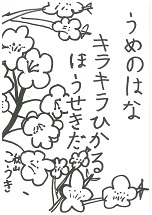 うめのはな
キラキラひかる
ほうせきだ
こうき